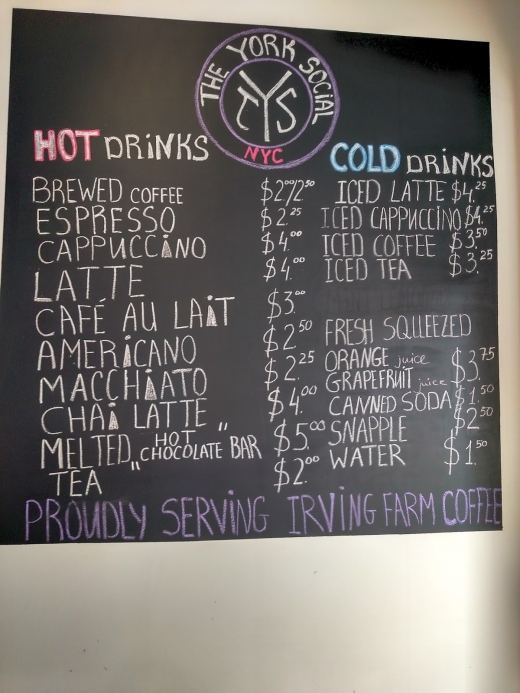 THE YORK SOCIAL
TYS
NYC
HOT DRINKS
BREWED COFFEE $2.00/2.50
ESPRESSO $2.25
CAPPUCCINO $4.00
LATTE $4.00
CAFÉ AU LAIT $3.00
AMERICANO $2.50
MACCHIATO $2.25
CHAI LATTE $4.00
MELTED "HOT CHOCOLATE" BAR $5.00
TEA $2.00
COLD DRINKS
ICED LATTE $4.25
ICED CAPPUCCINO $4.25
ICED COFFEE $3.50
ICED TEA $3.25
FRESH SQUEEZED
ORANGE juice $3.75
GRAPEFRUIT juice
CANNED SODA $1.50
SNAPPLE $2.50
WATER $1.50
PROUDLY SERVING IRVING FARM COFFEE